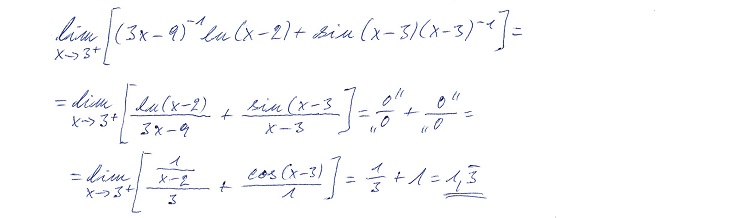 lim x→3+ [(3x-9)^-1 ln(x-2) + sin(x-3)(x-3)^-1] =
= lim x→3+ [ln(x-2)/(3x-9) + sin(x-3/(x-3)] = „0/0" + „0/0" =
= lim x→3+ [(1/(x-2))/3 + cos(x-3)/1] = 1/3 + 1 = 1,3̄